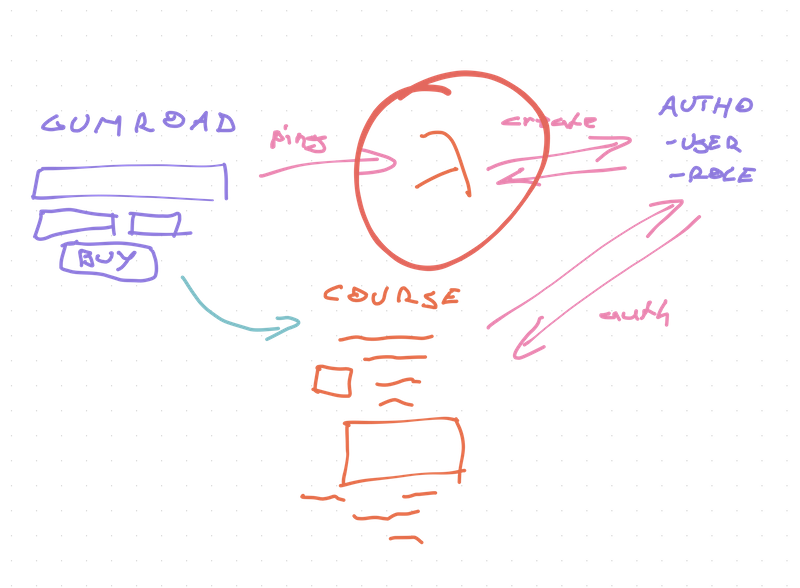 GUMROAD
pings
create
AUTH0
- USER
- ROLE
BUY
COURSE
auth